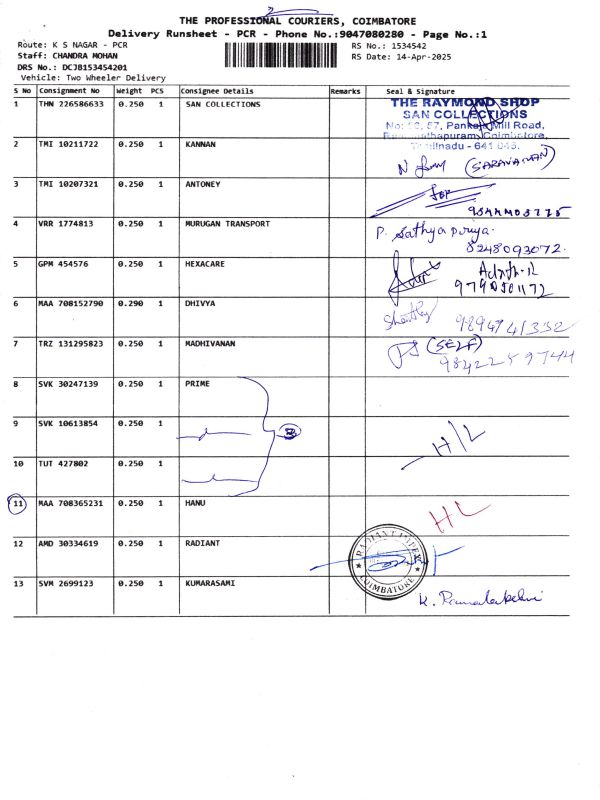 THE PROFESSIONAL COURIERS, COIMBATORE
Delivery Runsheet - PCR - Phone No.:9047080280 - Page No.:1
Route: K S NAGAR - PCR RS No.: 1534542
Staff: CHANDRA MOHAN RS Date: 14-Apr-2025
DRS No.: DCJB153454201
Vehicle: Two Wheeler Delivery
S No Consignment No Weight PCS Consignee Details Remarks Seal & Signature
1 THN 226586633 0.250 1 SAN COLLECTIONS
THE RAYMOND SHOP
SAN COLLECTIONS
Mill Road,
Coimbatore,
Tamilnadu - 641 045.
2 TMI 10211722 0.250 1 KANNAN
(SARAVANAN)
3 TMI 10207321 0.250 1 ANTONEY
4 VRR 1774813 0.250 1 MURUGAN TRANSPORT
P. Sathya priya.
8248093072.
5 GPM 454576 0.250 1 HEXACARE
6 MAA 708152790 0.290 1 DHIVYA
9894741332
7 TRZ 131295823 0.250 1 MADHIVANAN
(SELF)
9842259744
8 SVK 30247139 0.250 1 PRIME
9 SVK 10613854 0.250 1
H/L
10 TUT 427802 0.250 1
11 MAA 708365231 0.250 1 HANU
HL
12 AMD 30334619 0.250 1 RADIANT
COIMBATORE
13 SVM 2699123 0.250 1 KUMARASAMI